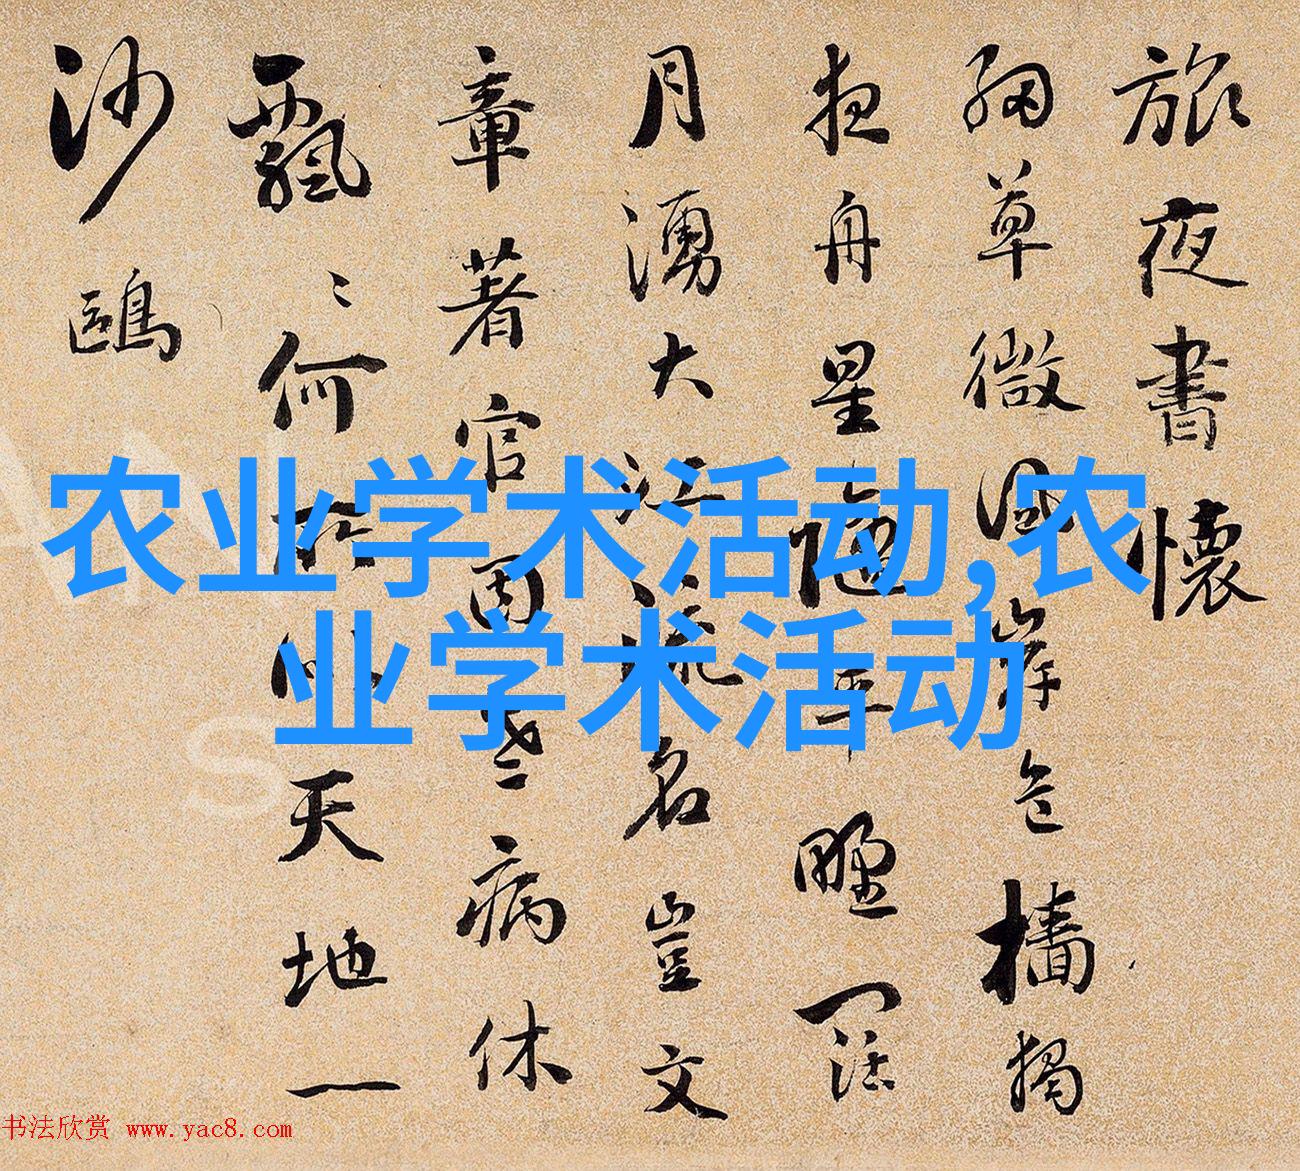 旅夜書懷
細草微風岸危檣獨
夜舟星隨平野闊
月湧大江流名豈文
章著官因老病休
飄〻何所似天地一
沙鷗
农业学术活动,农
业学术活动
书法欣赏 www.yac8.com